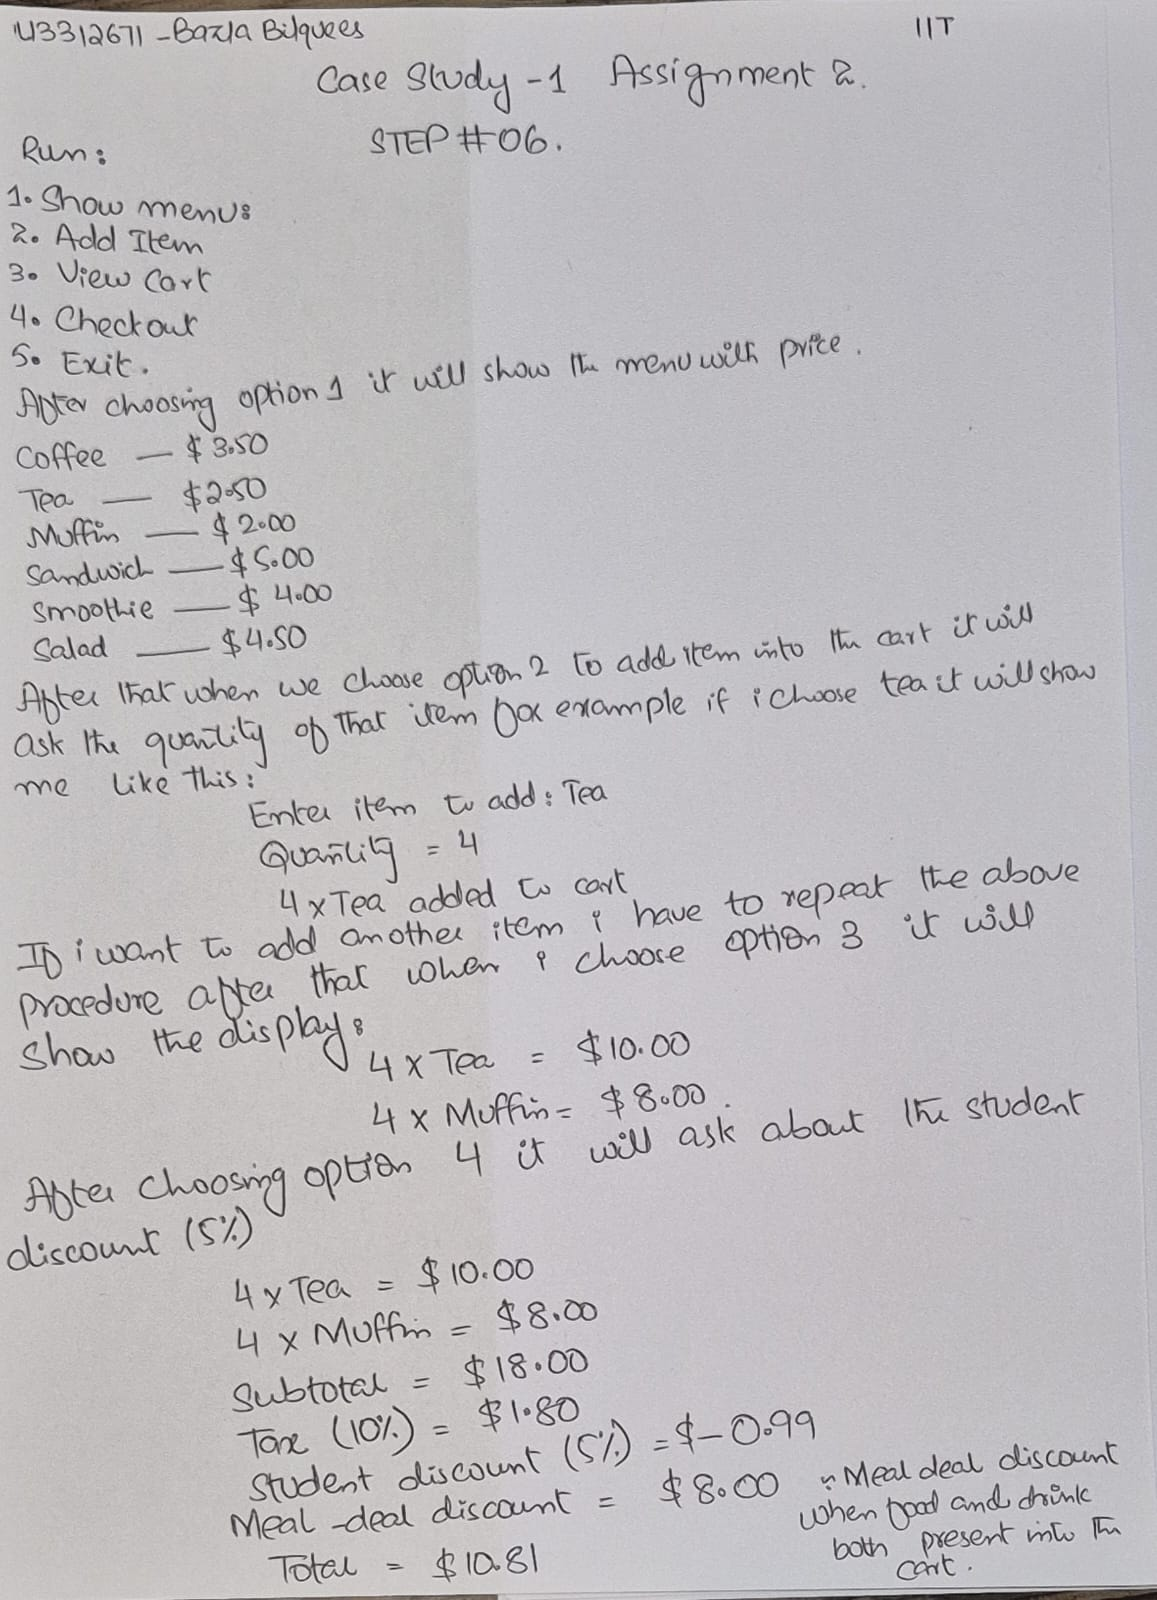 U3312671 - Bazla Bilquees
IIT
Case Study - 1 Assignment 2.
STEP #06.
Run:
1. Show menu:
2. Add Item
3. View Cart
4. Checkout
5. Exit.
After choosing option 1 it will show the menu with price.
Coffee — $3.50
Tea — $2.50
Muffin — $2.00
Sandwich — $5.00
Smoothie — $4.00
Salad — $4.50
After that when we choose option 2 to add item into the cart it will
ask the quantity of that item for example if i choose tea it will show
me like this:
Enter item to add: Tea
Quantity = 4
4 x Tea added to cart
If i want to add another item i have to repeat the above
procedure after that when i choose option 3 it will
show the display:
4 x Tea = $10.00
4 x Muffin = $8.00.
After choosing option 4 it will ask about the student
discount (5%)
4 x Tea = $10.00
4 x Muffin = $8.00
Subtotal = $18.00
Tax (10%) = $1.80
Student discount (5%) = $-0.99
Meal-deal discount = $8.00 ∵ Meal deal discount
when food and drink
both present into the
cart.
Total = $10.81